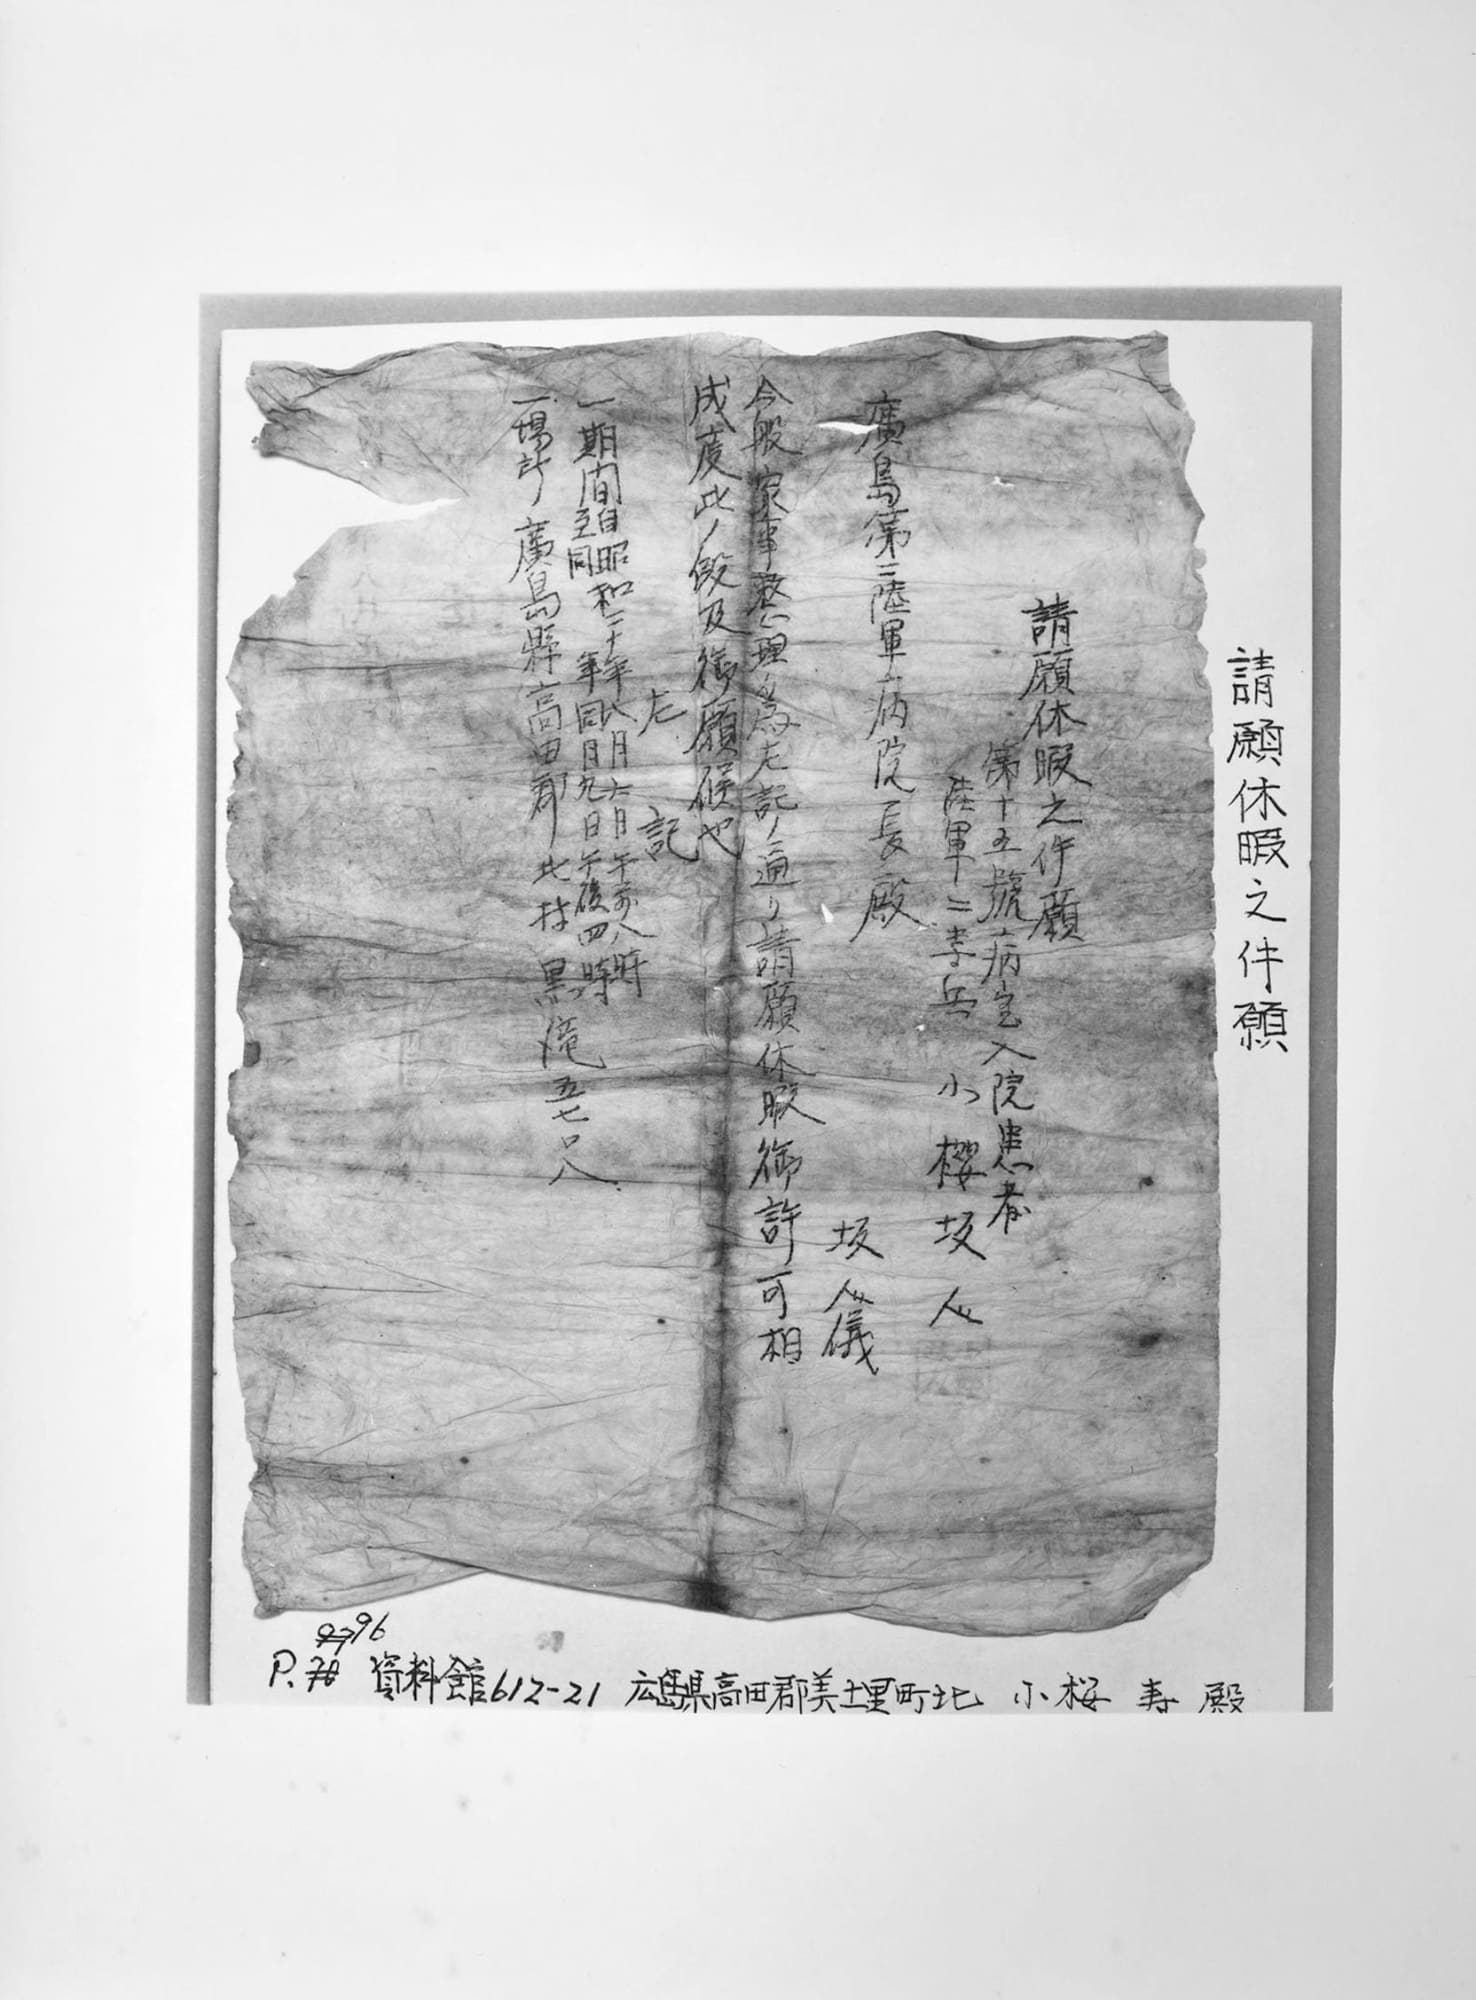 請願休暇之件願
請願休暇之件願
第十五號病室入院患者
陸軍二等兵 小櫻坂人
廣島第二陸軍病院長殿
坂人儀
今般家事整理ノ為左記ノ通リ請願休暇御許可相
成度此ノ段及御願候也
左記
一期間自昭和二十年八月六日午前八時
至同年同月九日午後四時
一場所 廣島縣高田郡北村黒滝五七〇八
96
P. 資料館612-21 広島県高田郡美土里町北 小桜 寿 殿